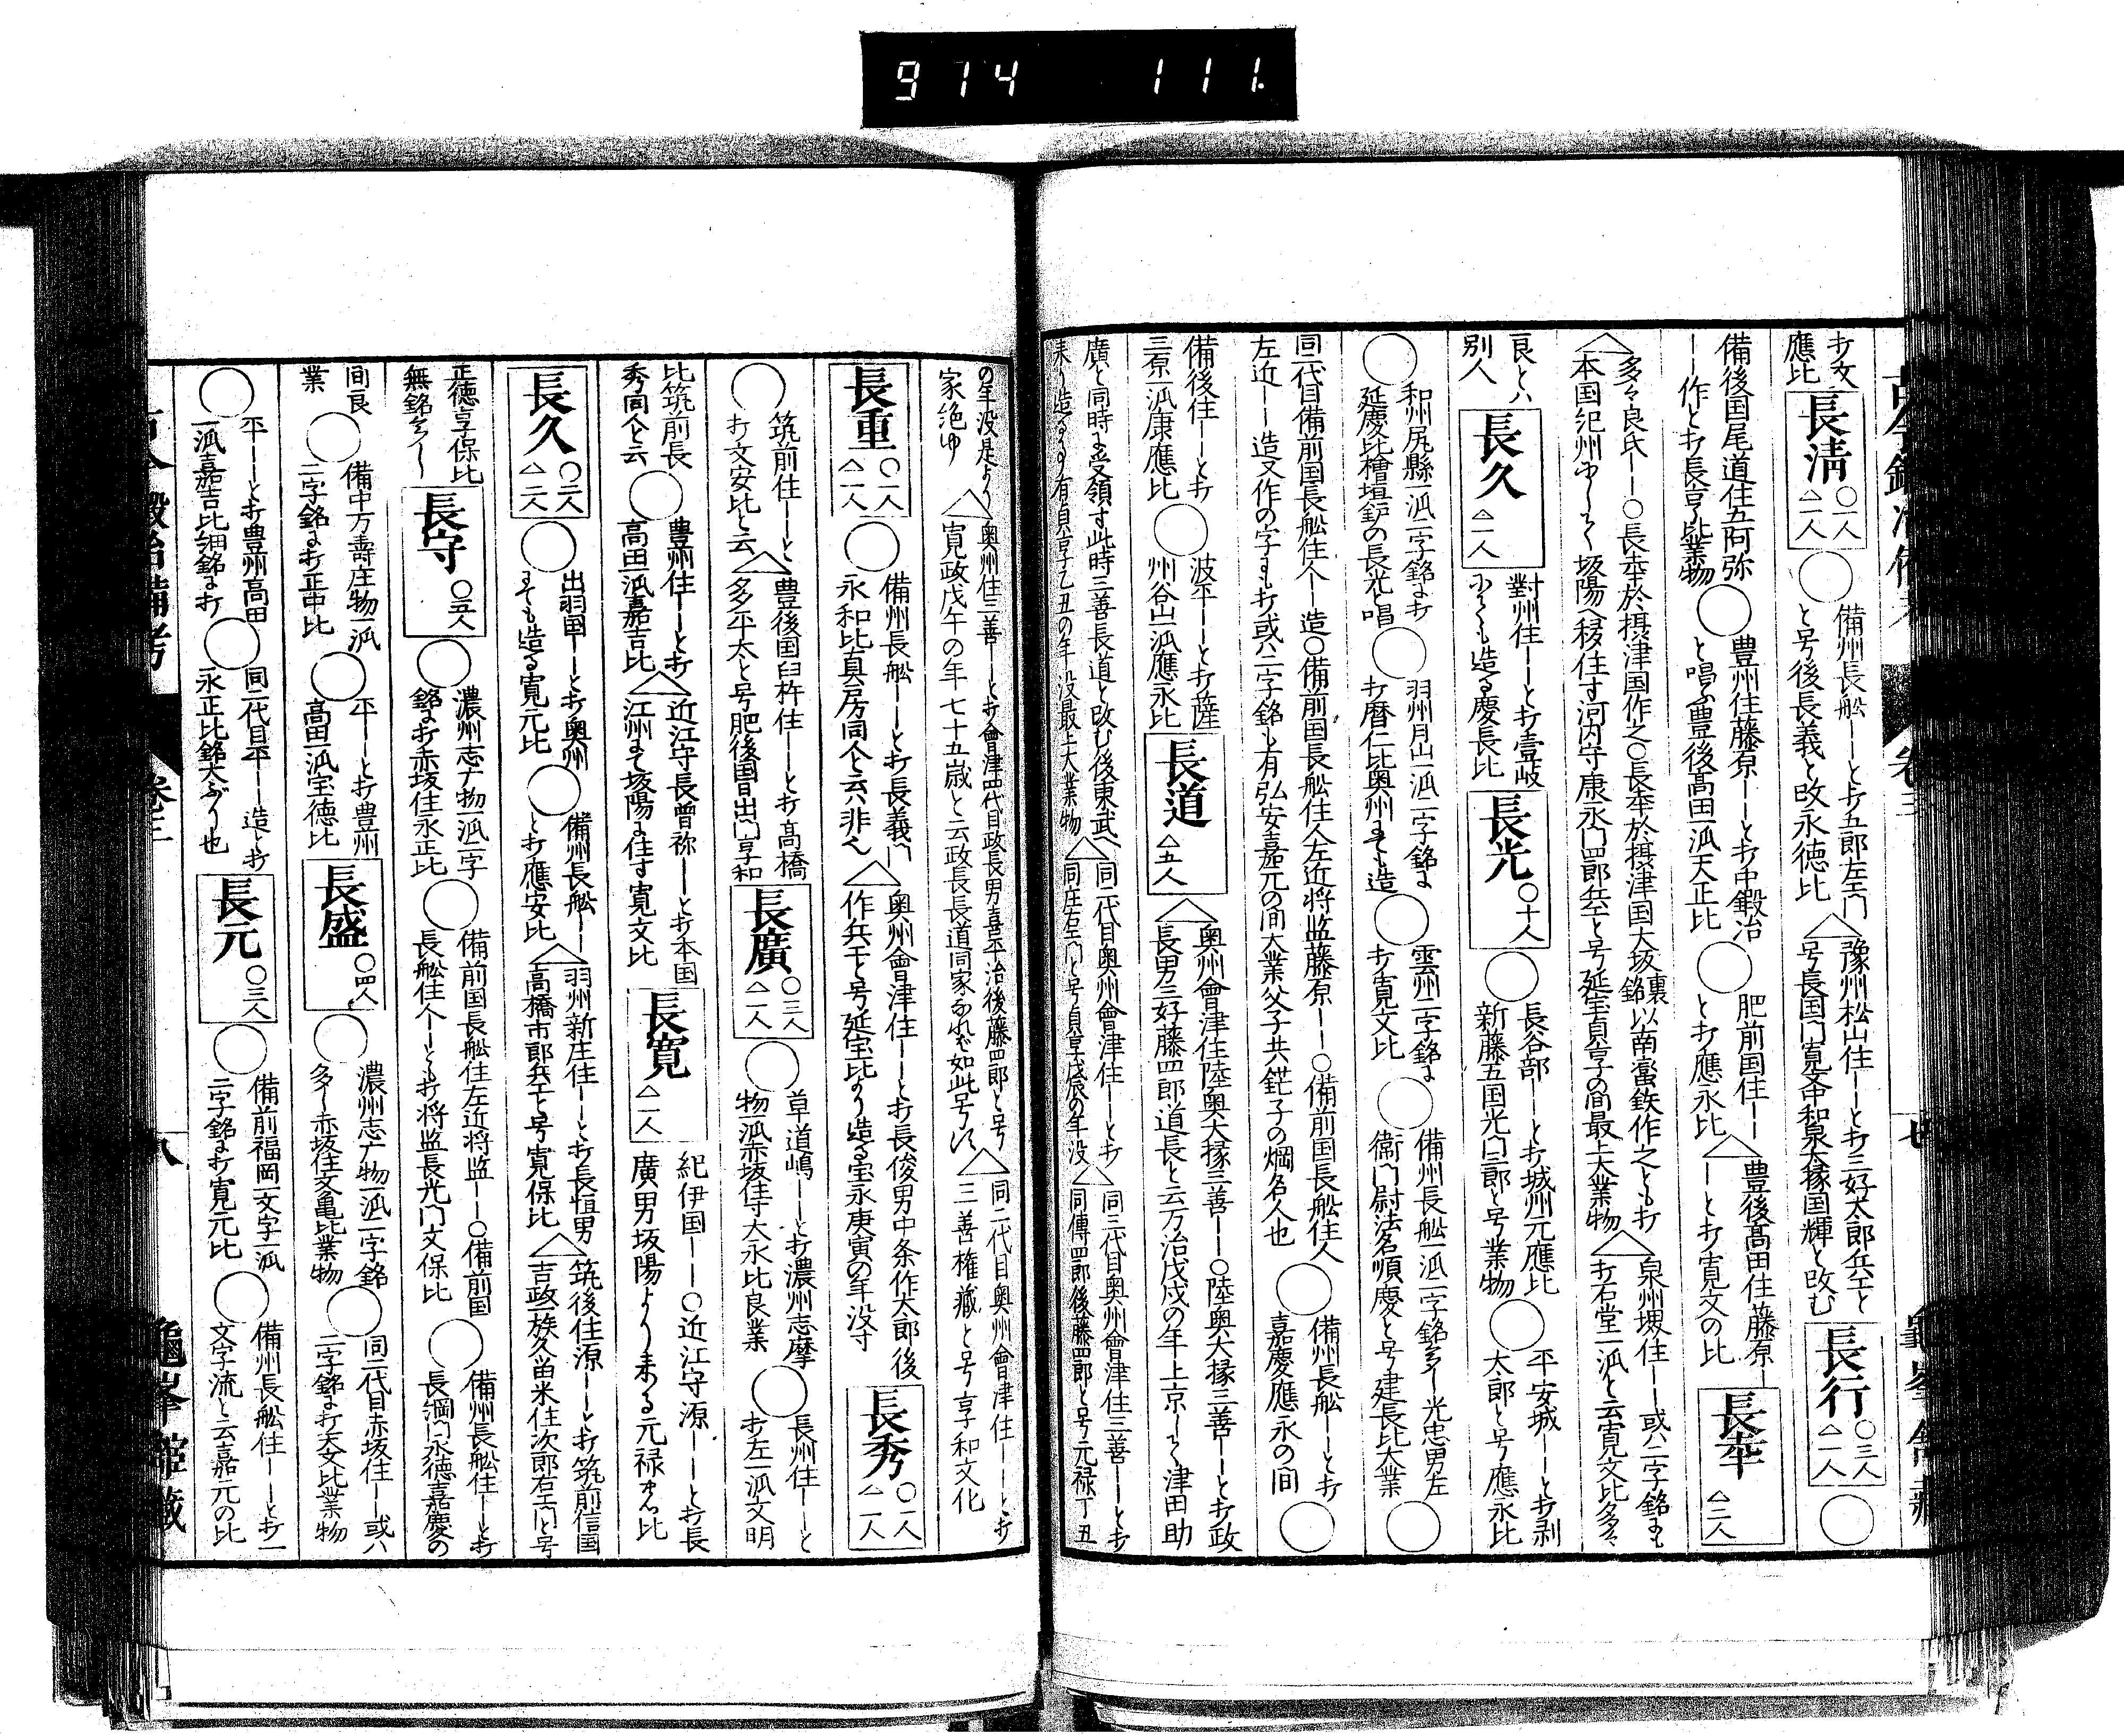 974 111.
打文
應比
長淸 ○一人 △一人
○備州長舩——と打五郎左エ門
と号後長義と改永徳比
△豫州松山住——と打三好太郎兵エと
号長国門寛文中和泉大掾国輝と改む
長行 ○三人 △一人
○
備後国尾道住五阿弥
—作と打長享比業物
○豊州住藤原——と打中鍛冶
と唱ふ豊後髙田一派天正比
○肥前国住——
と打應永比
△豊後髙田住藤原—
——と打寛文の比
長幸 △二人
△多々良氏——○長幸於摂津国作之○長幸於摂津国大坂裏銘以南蛮鉄作之とも打
本国紀州 坂陽へ移住す河内守康永門四郎兵エと号延宝貞享の間最上大業物
△泉州堺住——或ハ二字銘にも
打石堂一派と云寛文比多々
良とハ
別人
長久 △一人
對州住——と打壹岐
にても造る慶長比
長光 ○十人
○長谷部——と打城州元應比
新藤五国光門三郎と号業物
○平安城——と打剥
太郎と号應永比
○和州尻縣一派二字銘に打
延慶比檜垣鈩の長光唱
○羽州月山一派二字銘に
打暦仁比奥州にても造
○雲州二字銘に
打寛文比
○備州長舩一派二字銘多し光忠男左
衞門尉法名順慶と号建長比大業
○
同二代目備前国長舩住人—造○備前国長舩住人左近将監藤原——○備前国長舩住人
左近——造又作の字にも打或ハ二字銘も有弘安嘉元の間大業父子共鋩子の焔名人也
○備州長舩——と打
嘉慶應永の間
○
備後住——と打
三原一派康應比
○波平——と打薩
州谷山一派應永比
長道 △五人
△奥州會津住陸奥大掾三善——○陸奥大掾三善——と打政
長男三好藤四郎道長と云万治戊戌の年上京して津田助
廣と同時に受領す此時三善長道と改む後東武へ
来り造るも有貞享乙丑の年没最上大業物
△同二代目奥州會津住——と打
同庄左エ門と号貞享戊辰の年没
△同三代目奥州會津住三善——と打
同傳四郎後藤四郎と号元禄丁丑
の年没是より
家絶ゆ
△奥州住三善——と打會津四代目政長男喜平治後藤四郎と号
寛政戊午の年七十五歳と云政長長道同家なれバ如此号ス
△同二代目奥州會津住——と打
三善権藏と号享和文化
長重 ○一人 △一人
○備州長舩——と打長義門
永和比真房同人と云ハ非ん
△奥州會津住——と打長俊男中条作太郎後
作兵エと号延宝比より造る宝永庚寅の年没す
長秀 ○一人 △一人
○筑前住——と
打文安比と云
△豊後国臼杵住——と打髙橋
多平太と号肥後国日出門享和
長廣 ○三人 △一人
○草道嶋——と打濃州志摩
物一派赤坂住寺大永比良業
○長州住——と
打左一派文明
比筑前長
秀同人と云
○豊州住——と打
高田一派嘉吉比
△近江守長曽祢——と打本国
江州にて坂陽に住す寛文比
長寛 △一人
紀伊国——○近江守源——と打長
廣男坂陽より来る元禄 比
長久 ○二人 △二人
○出羽国——と打奥州
にても造る寛元比
○備州長舩——
と打應安比
△羽州新庄住——と打長恒男
高橋市郎兵エと号寛保比
△筑後住源——と打筑前信国
吉政一族久留米住次郎右エ門と号
正徳享保比
無銘多し
長守 ○五人
○濃州志ヅ物一派二字
銘に打赤坂住永正比
○備前国長舩住左近将監——○備前国
長舩住人——とも打将監長光門文保比
○備州長舩住——と打
長綱門永徳嘉慶の
間良
業
○備中万壽庄物一派
二字銘に打正中比
○平——と打豊州
髙田一派宝徳比
長盛 ○四人
○濃州志ヅ物一派二字銘
多し赤坂住文亀比業物
○同二代目赤坂住——或ハ
二字銘に打天文比業物
○平——と打豊州高田
一派嘉吉比細銘に打
○同二代目平——造と打
永正比銘大ぶり也
長元 ○三人
○備前福岡一文字一派
二字銘に打寛元比
○備州長舩住——と打一
文字流と云嘉元の比
鍛冶備考 卷三
八
龜峯舘藏